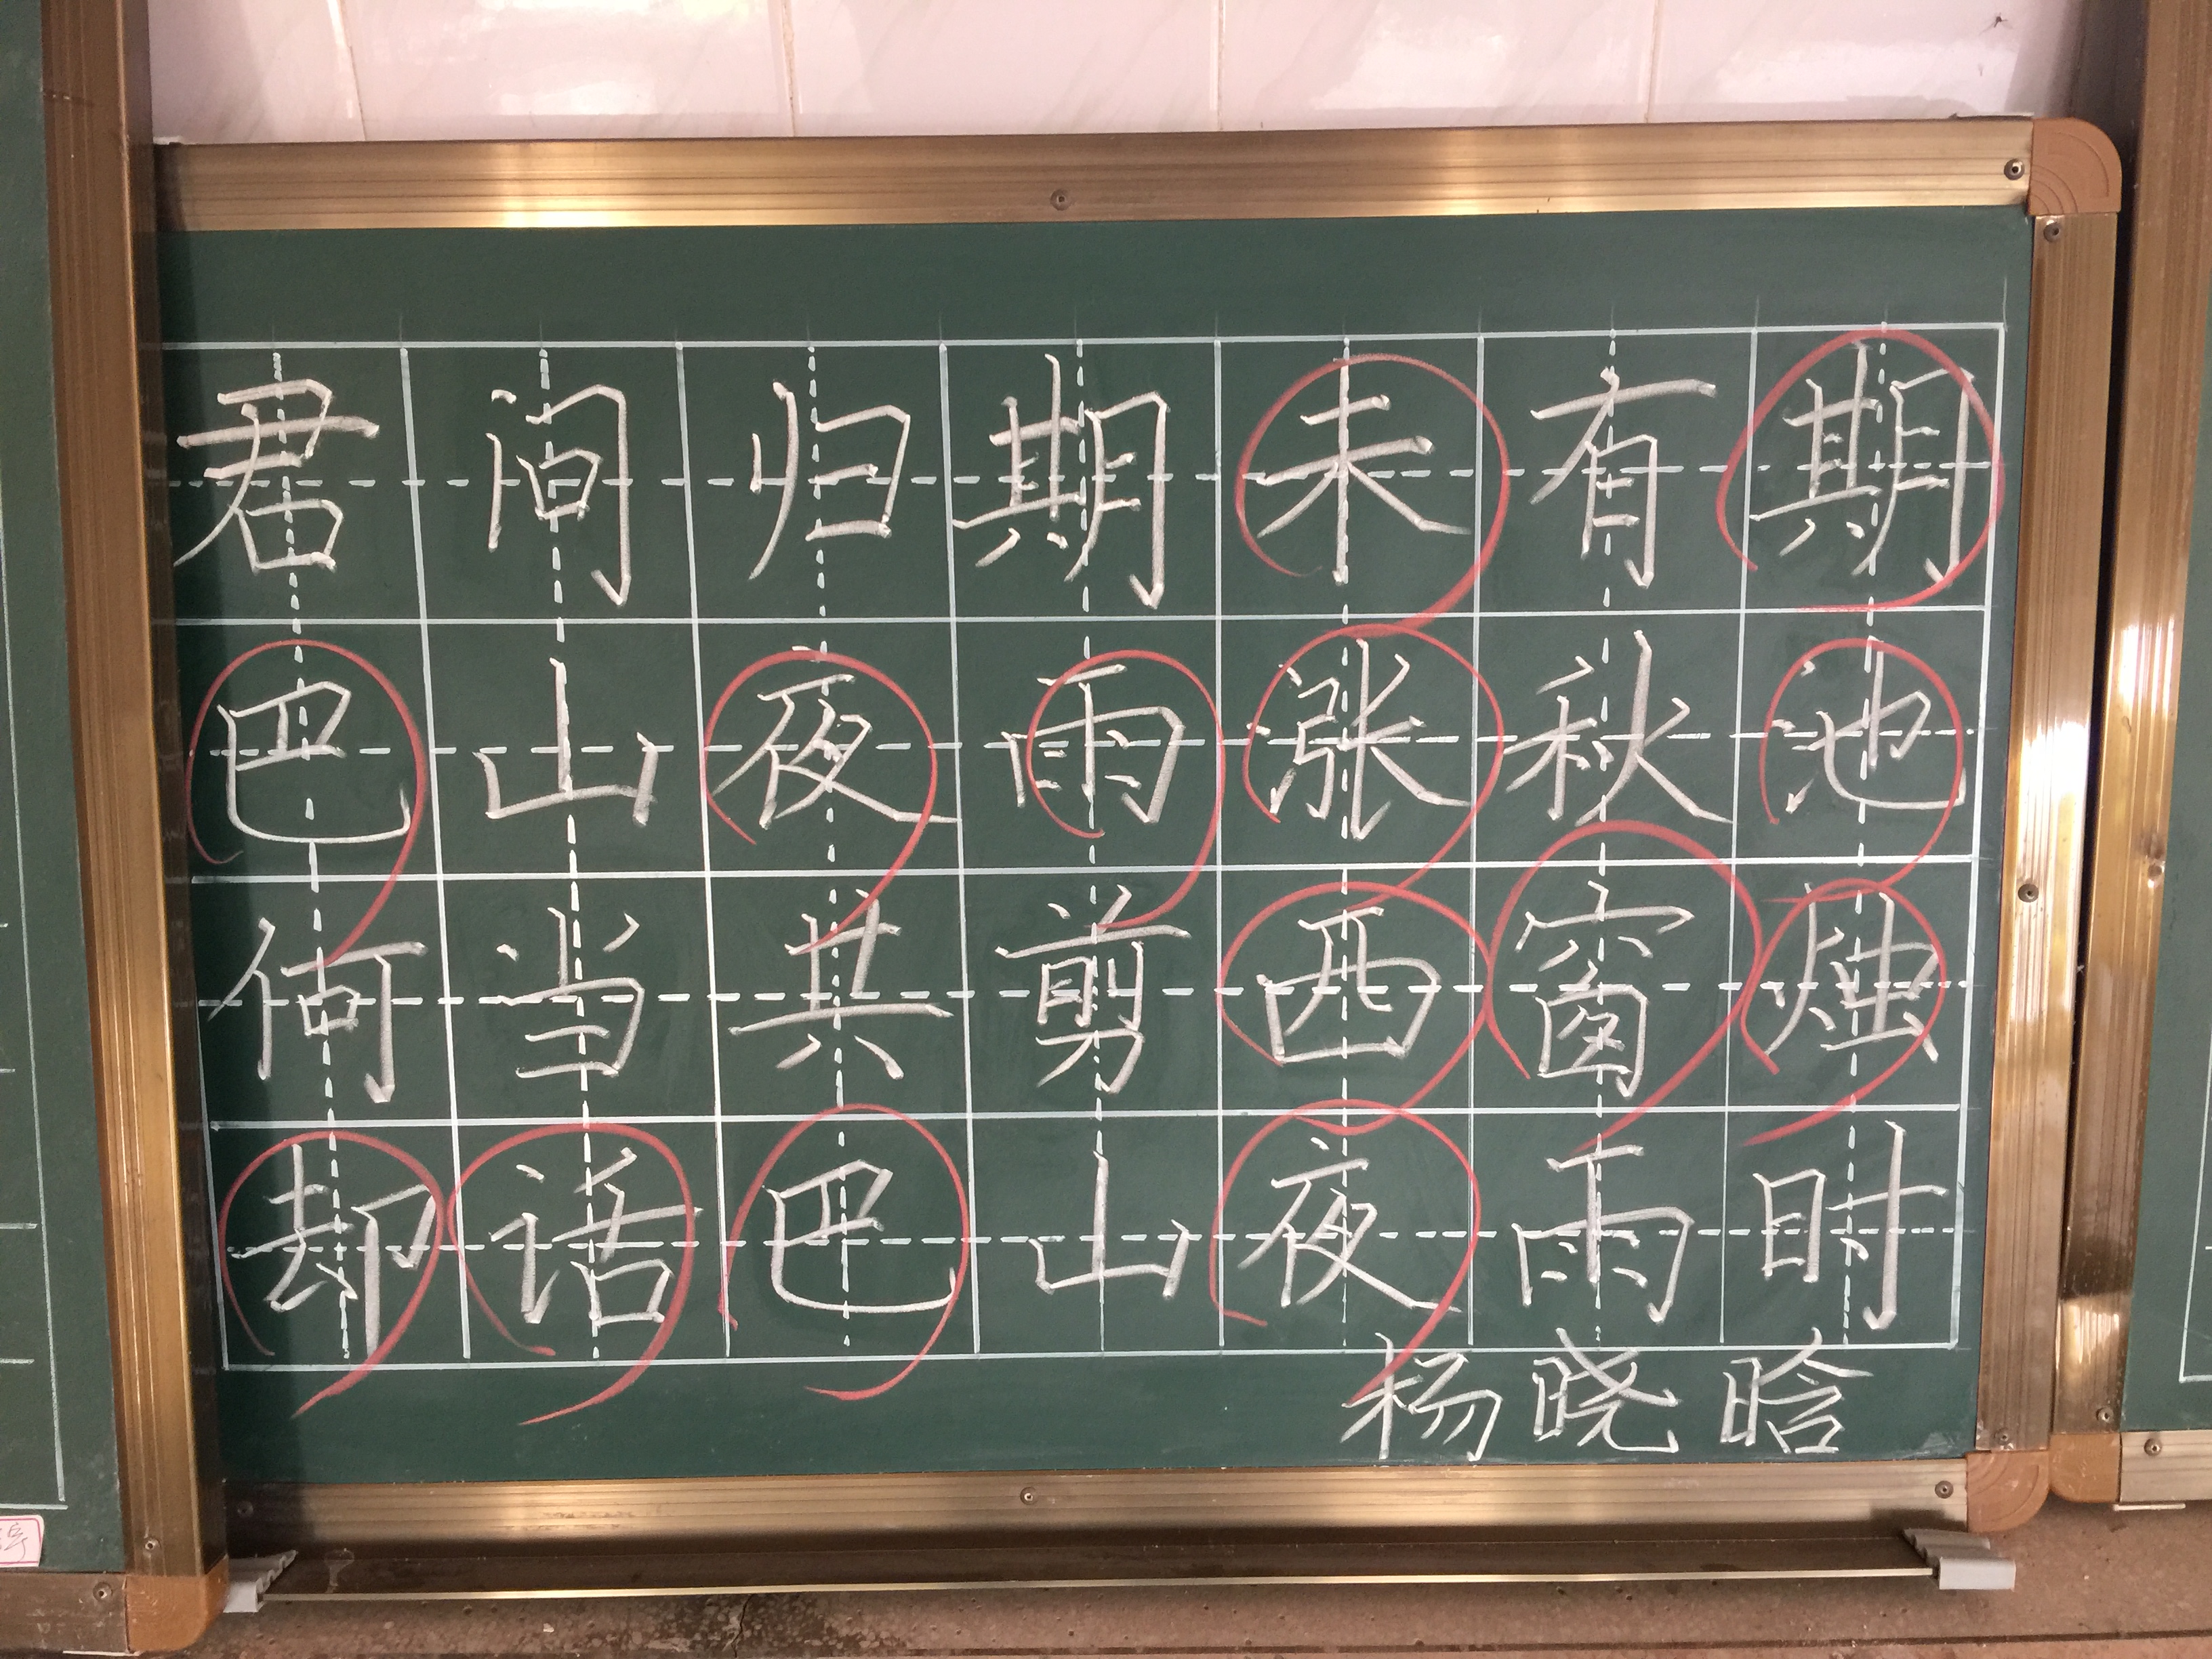 君问归期未有期
巴山夜雨涨秋池
何当共剪西窗烛
却话巴山夜雨时
杨晓晗